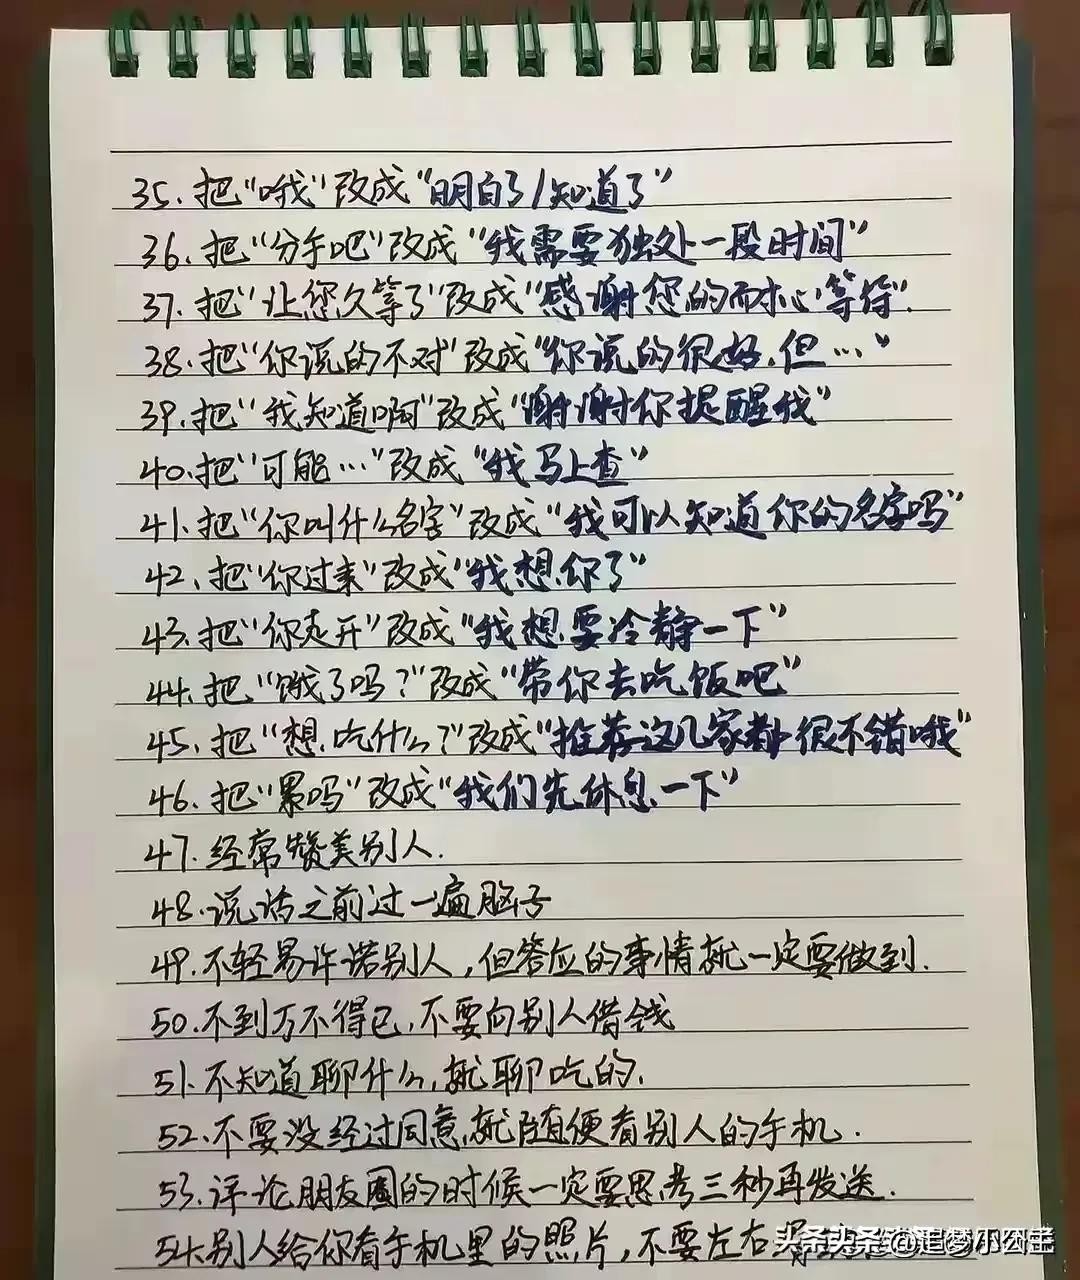 35. 把“哦”改成“明白了/知道了”
36. 把“分手吧”改成“我需要独处一段时间”
37. 把“让您久等了”改成“感谢您的耐心等待”.
38. 把“你说的不对”改成“你说的很好.但…”
39. 把“我知道啊”改成“谢谢你提醒我”
40. 把“可能…”改成“我马上查”
41. 把“你叫什么名字”改成“我可以知道你的名字吗”
42、把“你过来”改成“我想你了”
43. 把“你走开”改成“我想要冷静一下”
44. 把“饿了吗?”改成“带你去吃饭吧”
45、把“想吃什么?”改成“推荐这几家都很不错哦”
46. 把“累吗”改成“我们先休息一下”
47. 经常赞美别人.
48. 说话之前过一遍脑子
49. 不轻易许诺别人,但答应的事情就一定要做到.
50. 不到万不得已,不要向别人借钱
51. 不知道聊什么,就聊吃的.
52. 不要没经过同意,就随便看别人的手机.
53. 评论朋友圈的时候一定要思考三秒再发送.
54. 别人给你看手机里的照片,不要左右
头条 @追梦小公主